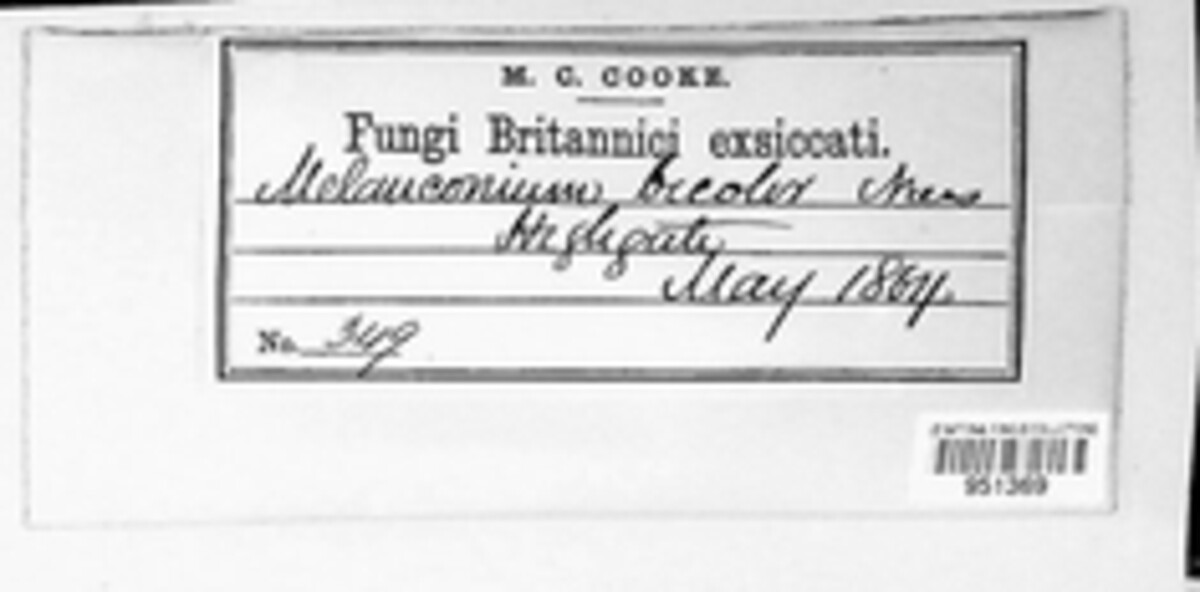 M. C. COOKE.
Fungi Britannici exsiccati.
Melanconium bicolor Nees
Highgate
May 1864.
No. 349
951369